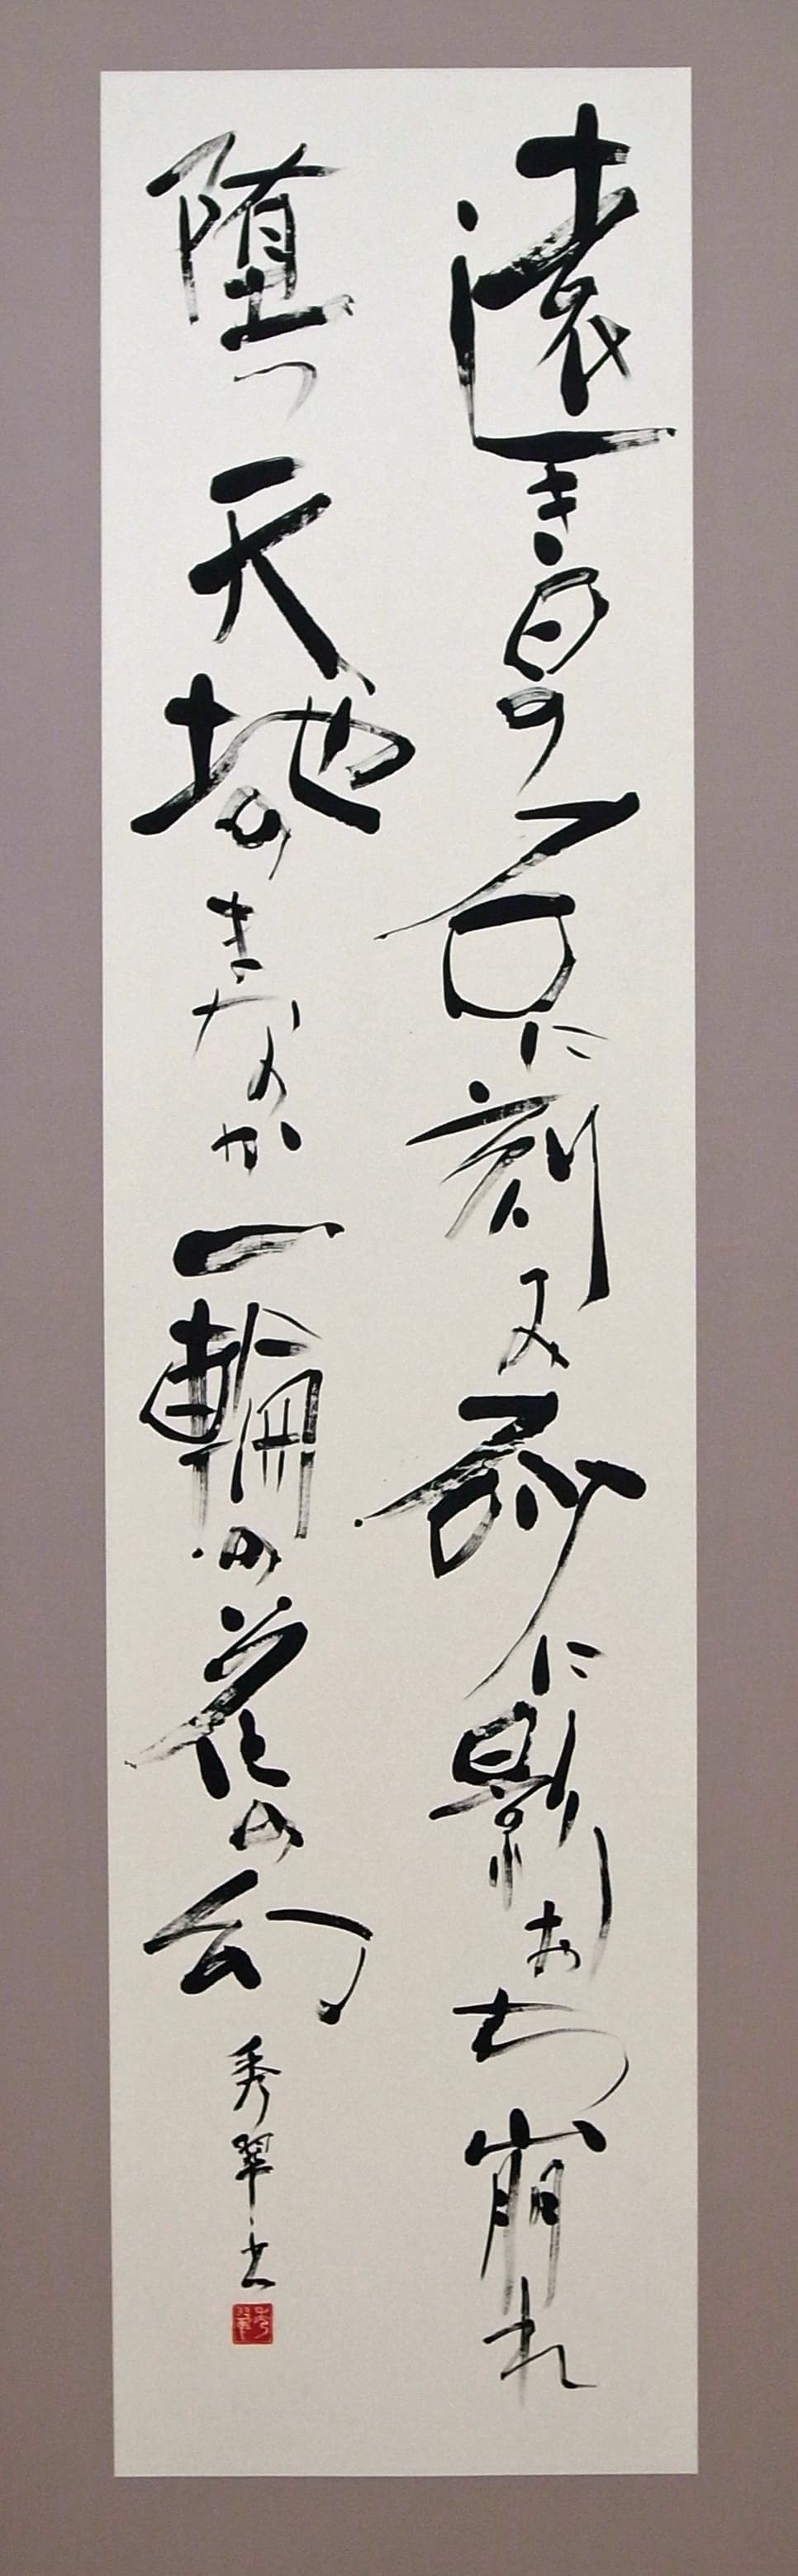 遠き日の石に刻み砂に影おち崩れ
堕つ天地のまなか一輪の花の幻
秀翠書